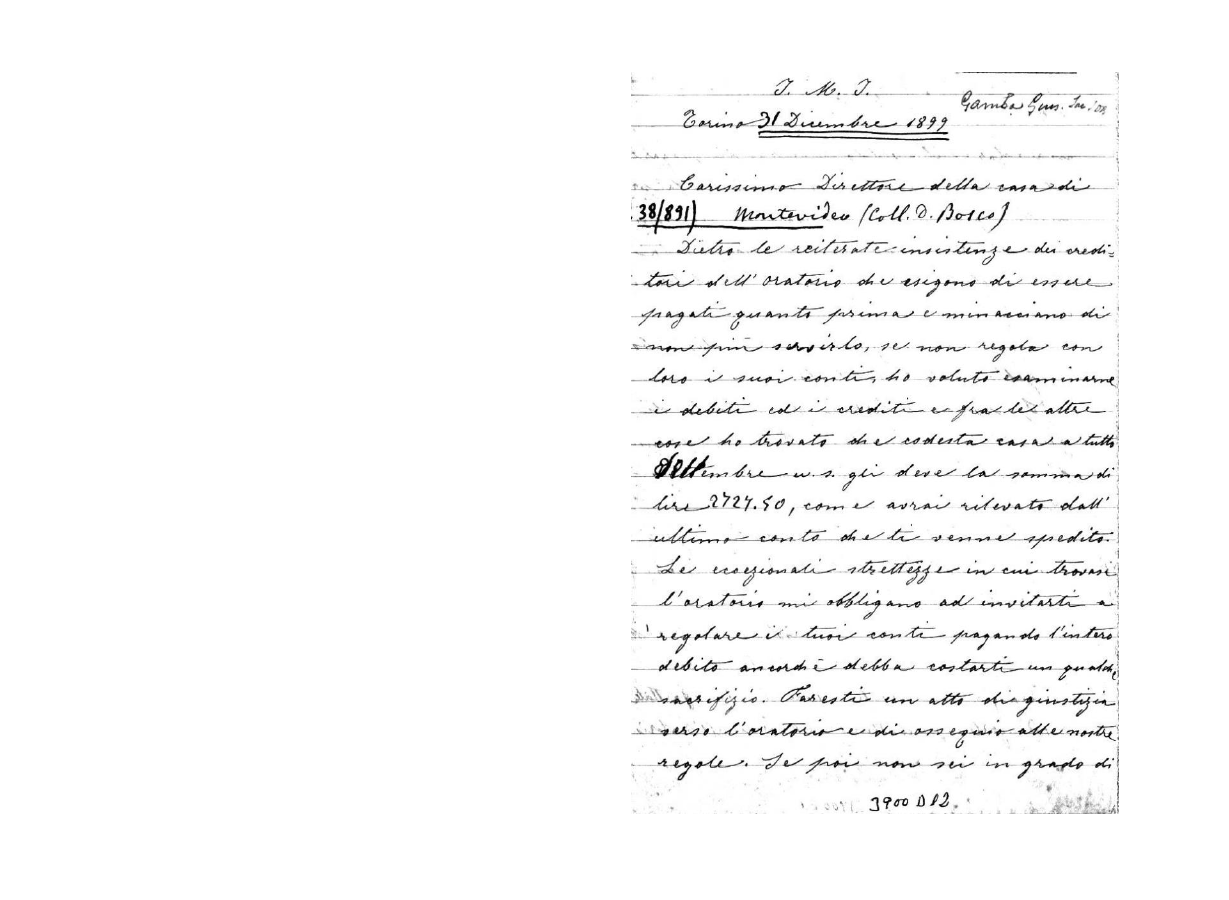 J. M. J.
Gamba Gius.
Torino 31 Dicembre 1899
Carissimo Direttore della casa di
38/891) Montevideo (Coll. D. Bosco)
Dietro le reiterate insistenze dei credi=
tori dell' oratorio che esigono di essere
pagati quanto prima e minacciano di
non più servirlo, se non regola con
loro i suoi conti, ho voluto esaminarne
i debiti ed i crediti e fra le altre
cose ho trovato che codesta casa a tutto
Settembre u. s. gli deve la somma di
lire 2727.50, come avrai rilevato dall'
ultimo conto che ti venne spedito.
Le eccezionali strettezze in cui trovasi
l'oratorio mi obbligano ad invitarti a
regolare i tuoi conti pagando l'intero
debito ancorchè debba costarti un qualche
sacrifizio. Faresti un atto di giustizia
verso l'oratorio e di ossequio alle nostre
regole. Se poi non sei in grado di
3900 D12